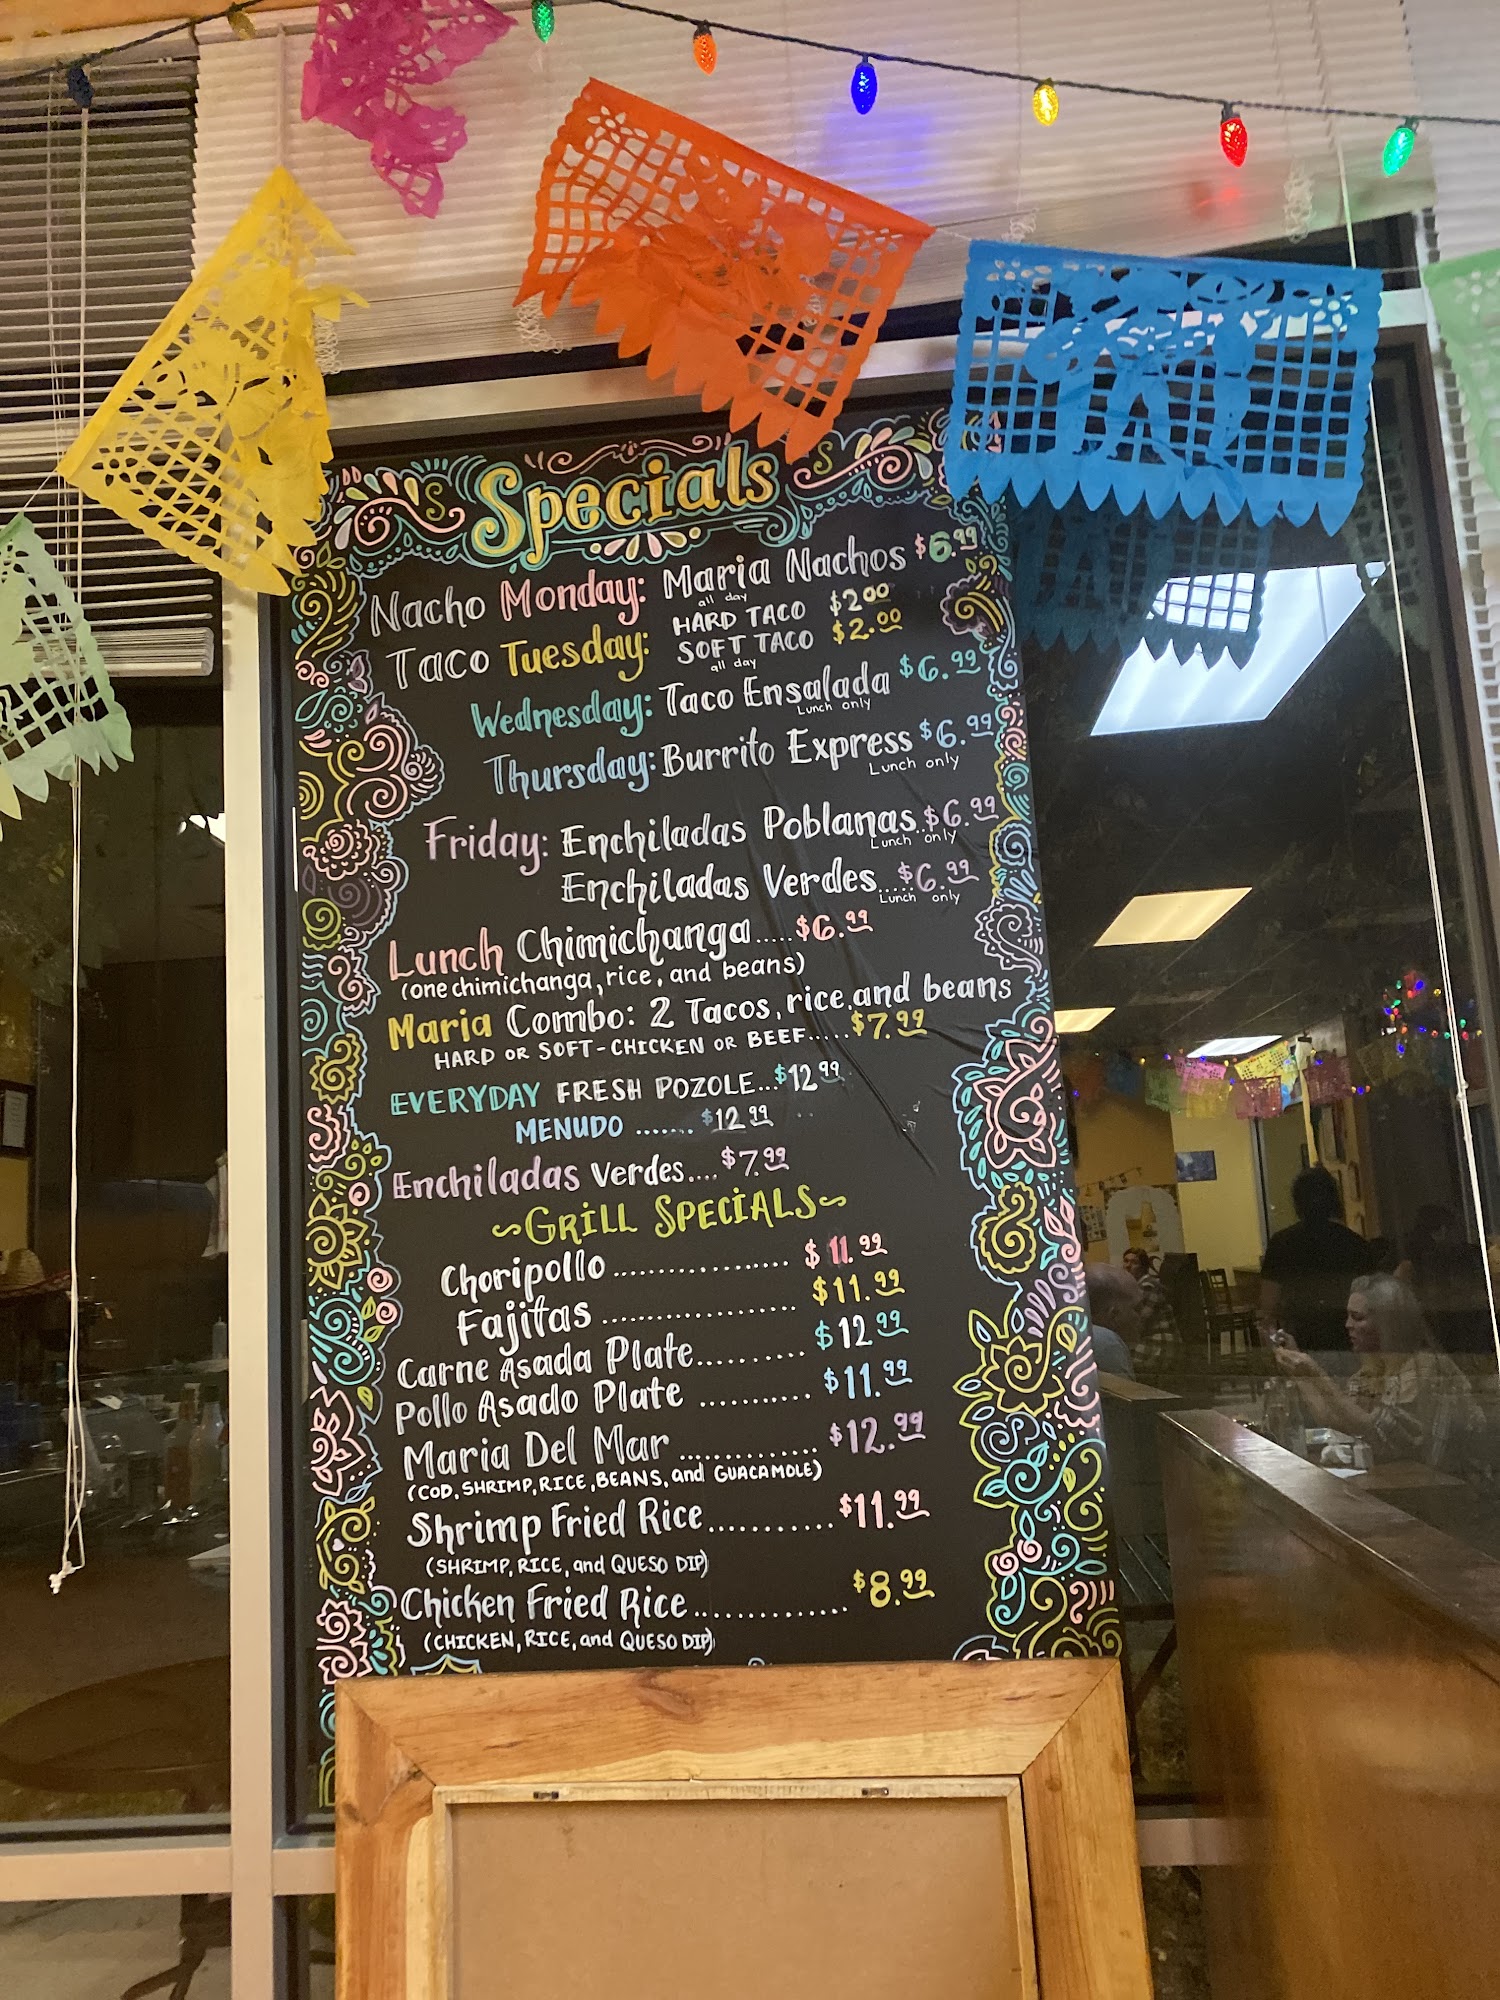 Specials
Nacho Monday: Maria Nachos $6.99
all day
Taco Tuesday: HARD TACO $2.00
SOFT TACO $2.00
all day
Wednesday: Taco Ensalada $6.99
Lunch only
Thursday: Burrito Express $6.99
Lunch only
Friday: Enchiladas Poblanas..$6.99
Lunch only
Enchiladas Verdes.....$6.99
Lunch only
Lunch Chimichanga.....$6.99
(one chimichanga, rice, and beans)
Maria Combo: 2 Tacos, rice, and beans
HARD OR SOFT-CHICKEN OR BEEF.....$7.99
EVERYDAY FRESH POZOLE...$12.99
MENUDO .......$12.99
Enchiladas Verdes....$7.99
~GRILL SPECIALS~
Choripollo ................. $11.99
Fajitas .................. $11.99
Carne Asada Plate.......... $12.99
Pollo Asado Plate .......... $11.99
Maria Del Mar ............. $12.99
(COD, SHRIMP, RICE, BEANS, and GUACAMOLE)
Shrimp Fried Rice...........$11.99
(SHRIMP, RICE, and QUESO DIP)
Chicken Fried Rice............. $8.99
(CHICKEN, RICE, and QUESO DIP)